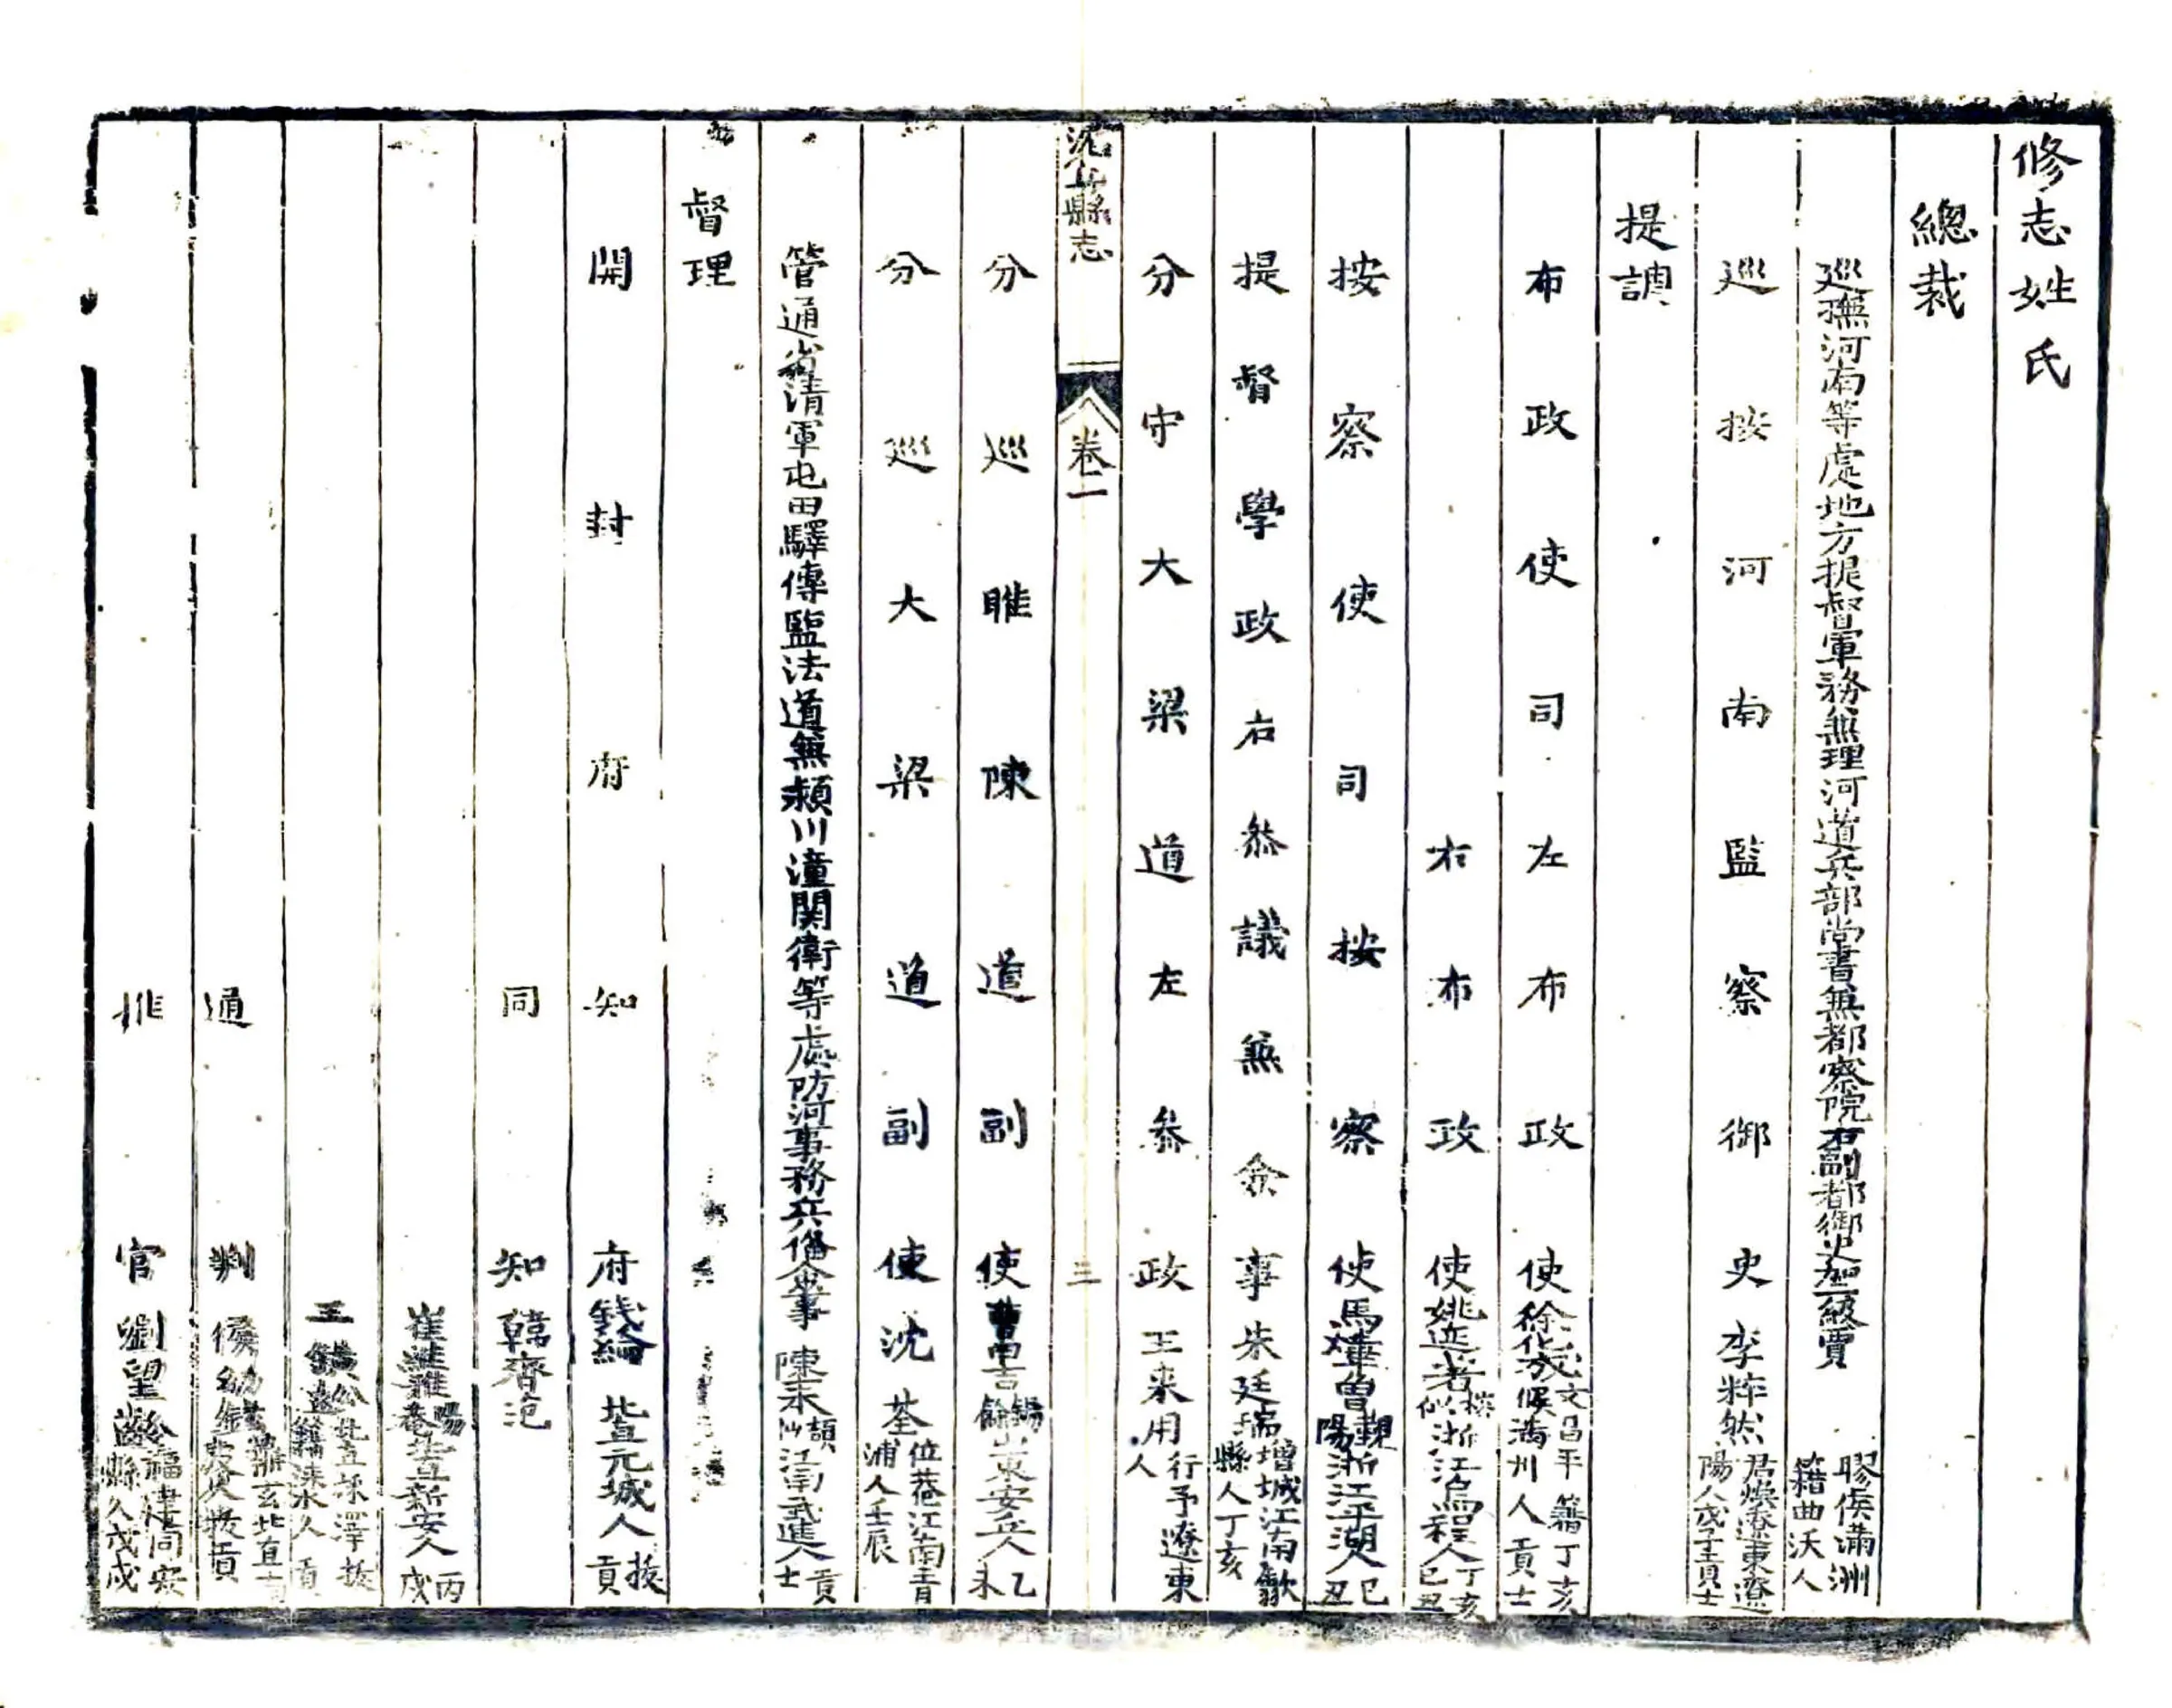 修志姓氏
總裁
巡撫河南等處地方提督軍務兼理河道兵部尚書兼都察院右副都御史加一級賈 膠侯滿洲籍曲沃人
巡按河南監察御史李粹然 君煥遼東遼陽人戊子貢士
提調
布政使司左布政使徐化成 文侯昌平籍滿州人丁亥貢士
右布政使姚延著 浙江烏程人丁亥己丑
按察使司按察使馬燁曾 浙江平湖人己丑
提督學政右叅議兼僉事朱廷瑞 增城江南歙縣人丁亥
分守大梁道左叅政王來用 行予遼東人
沈丘縣志 卷一 三
分巡睢陳道副使曹 山東安丘人乙未
分巡大梁道副使沈荃 位菴江南青浦人壬辰
管通省清軍屯田驛傳監法道兼潁川潼關衛等處防河事務兵備僉事 陳 江南武進人貢士
督理
開封府知府錢綸 北直元城人拔貢
同知韓齊范
崔維雅 北直新安人丙戌
王 貢
通判侯 拔貢
推官劉望齡 福建同安縣人戊戌